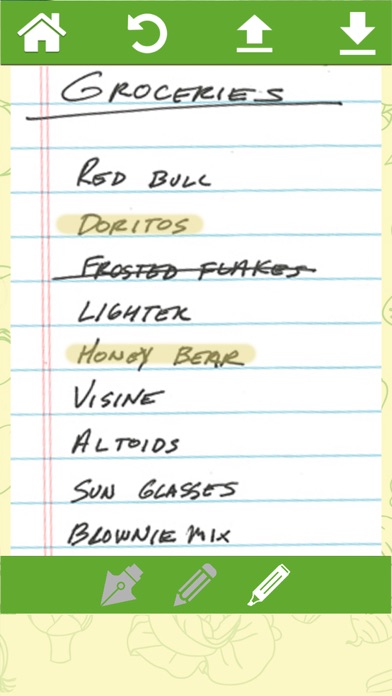 GROCERIES
RED BULL
DORITOS
FROSTED FLAKES
LIGHTER
HONEY BEAR
VISINE
ALTOIDS
SUN GLASSES
BROWNIE MIX